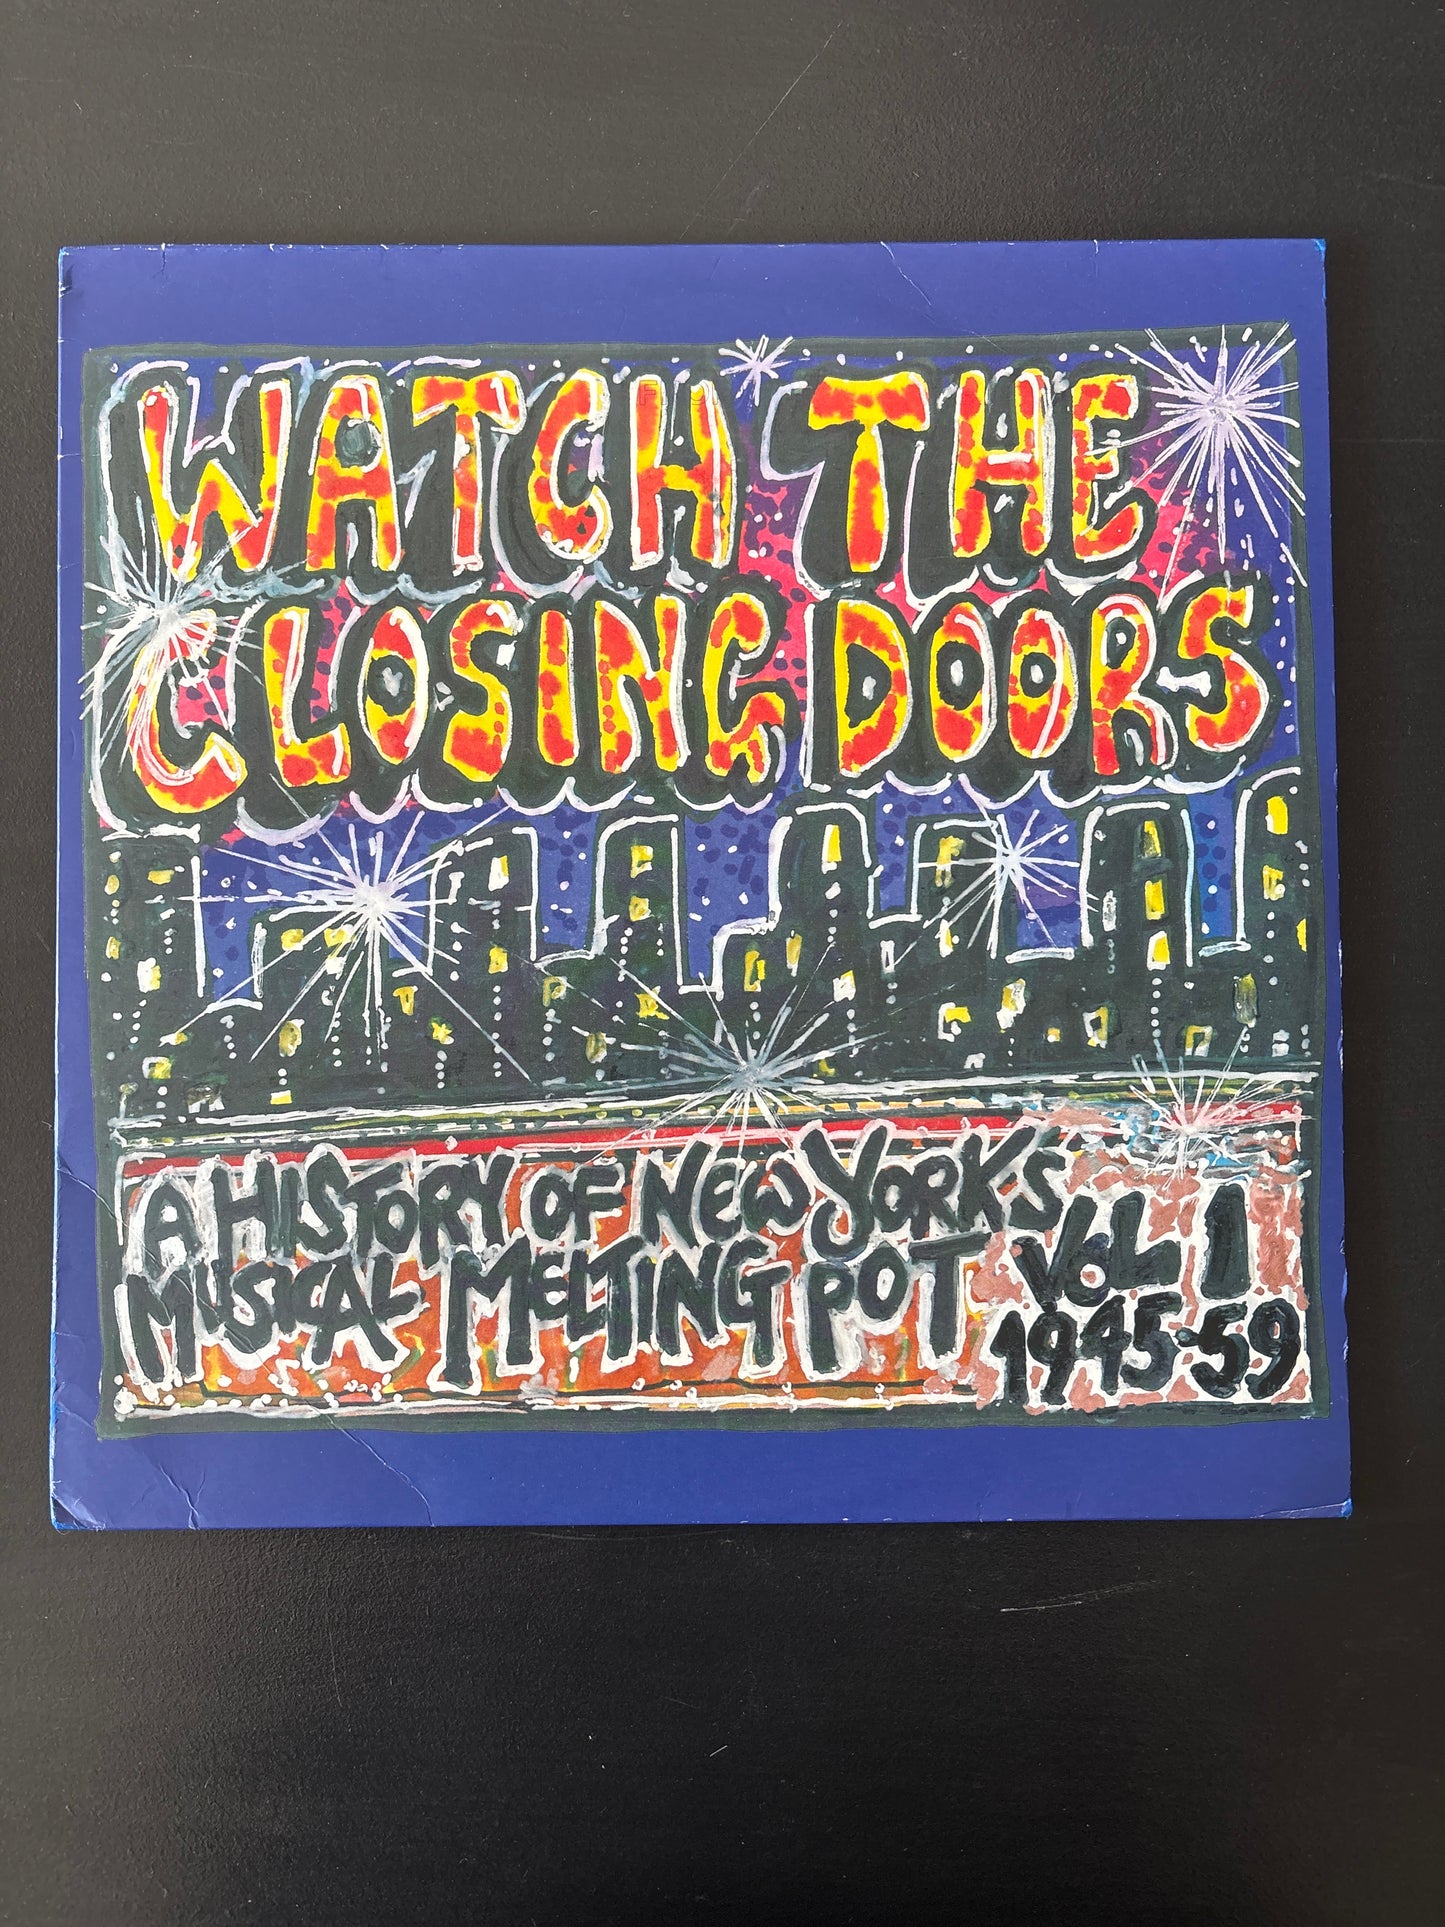 WATCH THE
CLOSING DOORS
A HISTORY OF NEW YORK'S
MUSICAL MELTING POT
VOL 1
1945-59